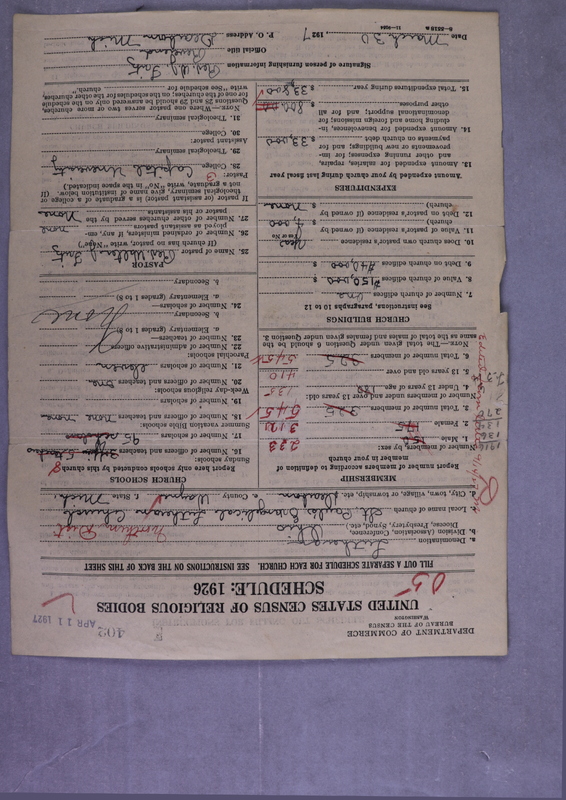 DEPARTMENT OF COMMERCE
BUREAU OF THE CENSUS
WASHINGTON
402
APR 11 1927
UNITED STATES CENSUS OF RELIGIOUS BODIES
SCHEDULE: 1926
05
FILL OUT A SEPARATE SCHEDULE FOR EACH CHURCH. SEE INSTRUCTIONS ON THE BACK OF THIS SHEET
a. Denomination Lutheran
b. Division (Association, Conference, Diocese, Presbytery, Synod, etc.) Ohio Northern Dist
c. Local name of church St. Pauls Evangelical Lutheran Church
d. City, town, village, or township, etc. Dearborn e. County Wayne f. State Mich.
MEMBERSHIP
Report number of members according to definition of member in your church
Number of members, by sex:
1. Male 150 233
2. Female 175 312
3. Total number of members 325 545
Number of members under and over 13 years old:
4. Under 13 years of age 130 135
5. 13 years old and over 410
6. Total number of members 325 545
NOTE.—The total given under Question 6 should be the same as the total of males and females given under Question 3.
CHURCH BUILDINGS
See instructions, paragraphs 10 to 12
7. Number of church edifices one
8. Value of church edifices $150,000
9. Debt on church edifices $40,000
10. Does own church pastor's residence Yes
(Yes or No)
11. Value of pastor's residence (if owned by church) $ 4,000
12. Debt on pastor's residence (if owned by church) $ none
EXPENDITURES
Amount expended by your church during last fiscal year
13. Amount expended for salaries, repairs, and other running expenses; for improvements or new buildings; and for payments on church debt $ 33,000
14. Amount expended for benevolences, including home and foreign missions; for denominational support; and for all other purposes $ 800
15. Total expenditures during year $ 33,800
CHURCH SCHOOLS
Report here only schools conducted by this church
Sunday schools:
16. Number of officers and teachers
17. Number of scholars 95
Summer vacation Bible schools:
18. Number of officers and teachers none
19. Number of scholars none
Week-day religious schools:
20. Number of officers and teachers one
21. Number of scholars eleven
Parochial schools:
22. Number of administrative officers
23. Number of teachers—
a. Elementary (grades 1 to 8)
b. Secondary
24. Number of scholars—
a. Elementary (grades 1 to 8)
b. Secondary
None
PASTOR
25. Name of pastor
(If church has no pastor, write "No")
26. Number of ordained ministers, if any, employed as assistant pastors none
27. Number of other churches served by the pastor or his assistants None
If pastor (or assistant pastor) is a graduate of college or theological seminary, give name of institution below. (If not a graduate, write "No" in the space indicated.)
Pastor:
28. College Capital University
29. Theological seminary
Assistant pastor:
30. College
31. Theological seminary
NOTE.—Where one pastor serves two or more churches, Questions 28 and 29 should be answered only on the schedule for one of the churches; on the schedules for the other churches, write "See schedule for church."
Signature of person furnishing information
Official title Reverend
P. O. Address Dearborn Mich
Date March 30 1927